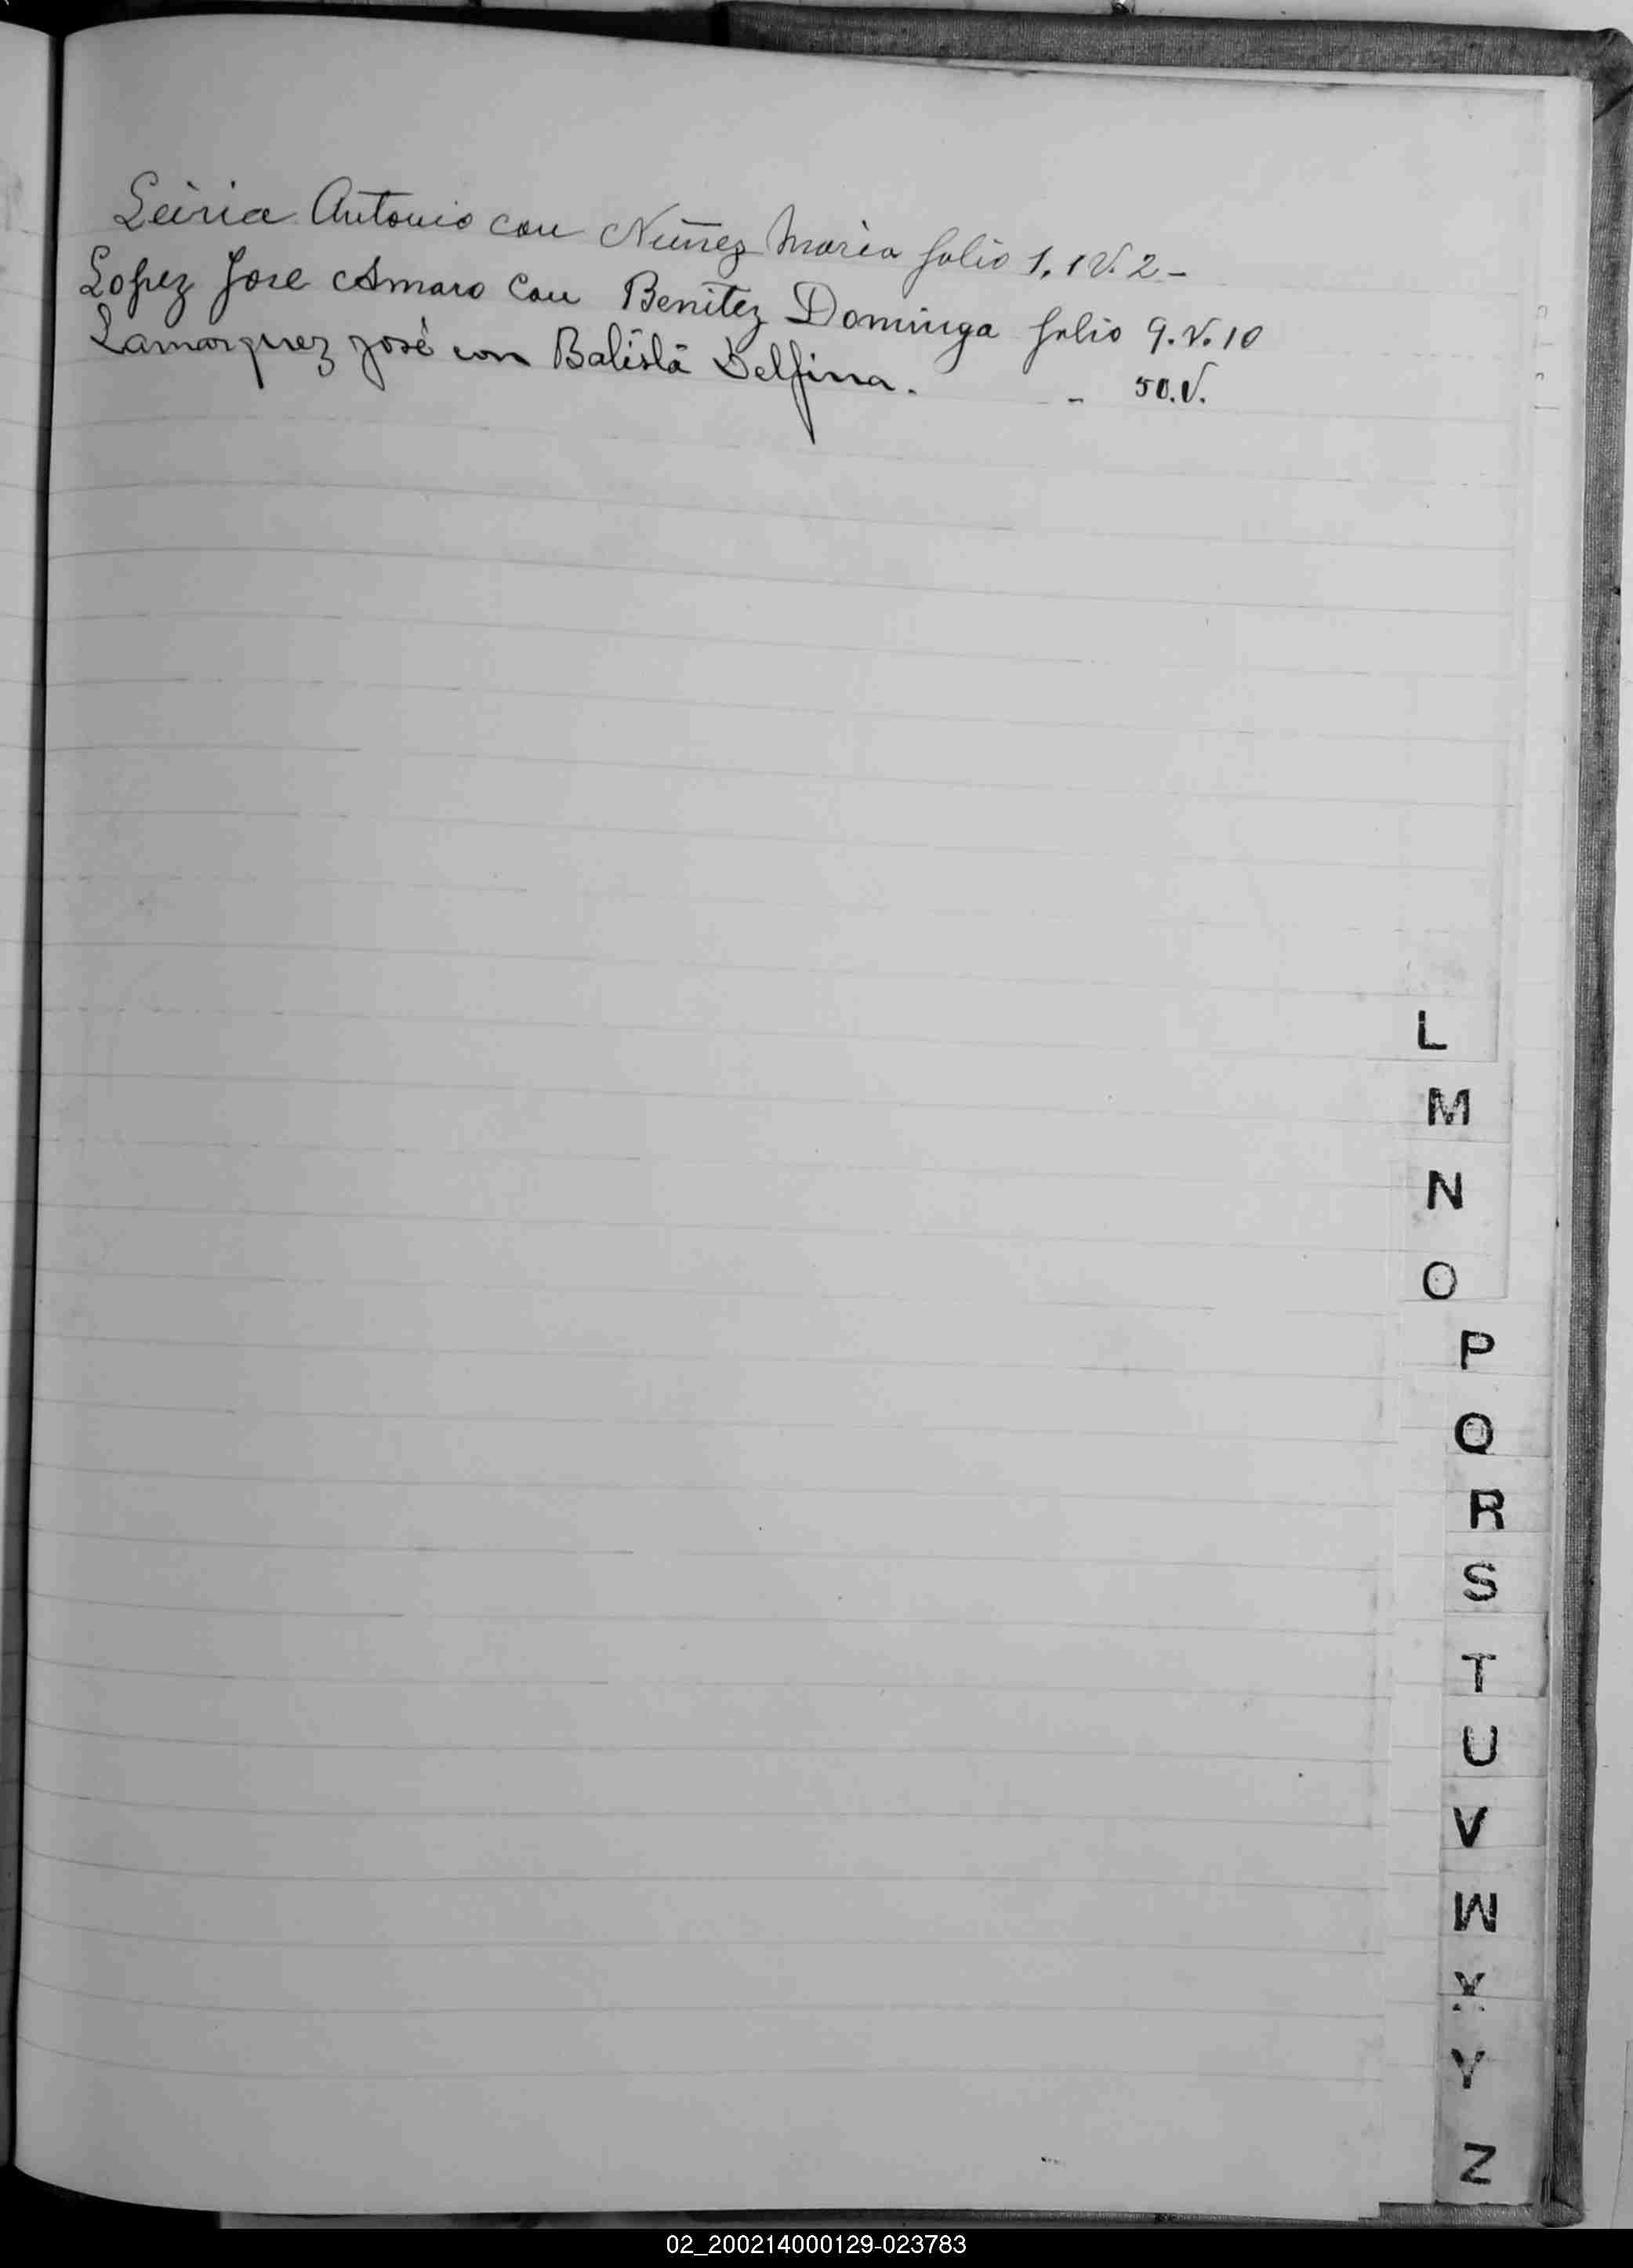 Leiria Antonio con Nuñez Maria folio 1, 1 V. 2 -
Lopez Jose Amaro con Benitez Dominga folio 9. V. 10
Lamarquez José con Batista Delfina. - 50. V.
L
M
N
O
P
Q
R
S
T
U
V
W
X
Y
Z
02_200214000129-023783